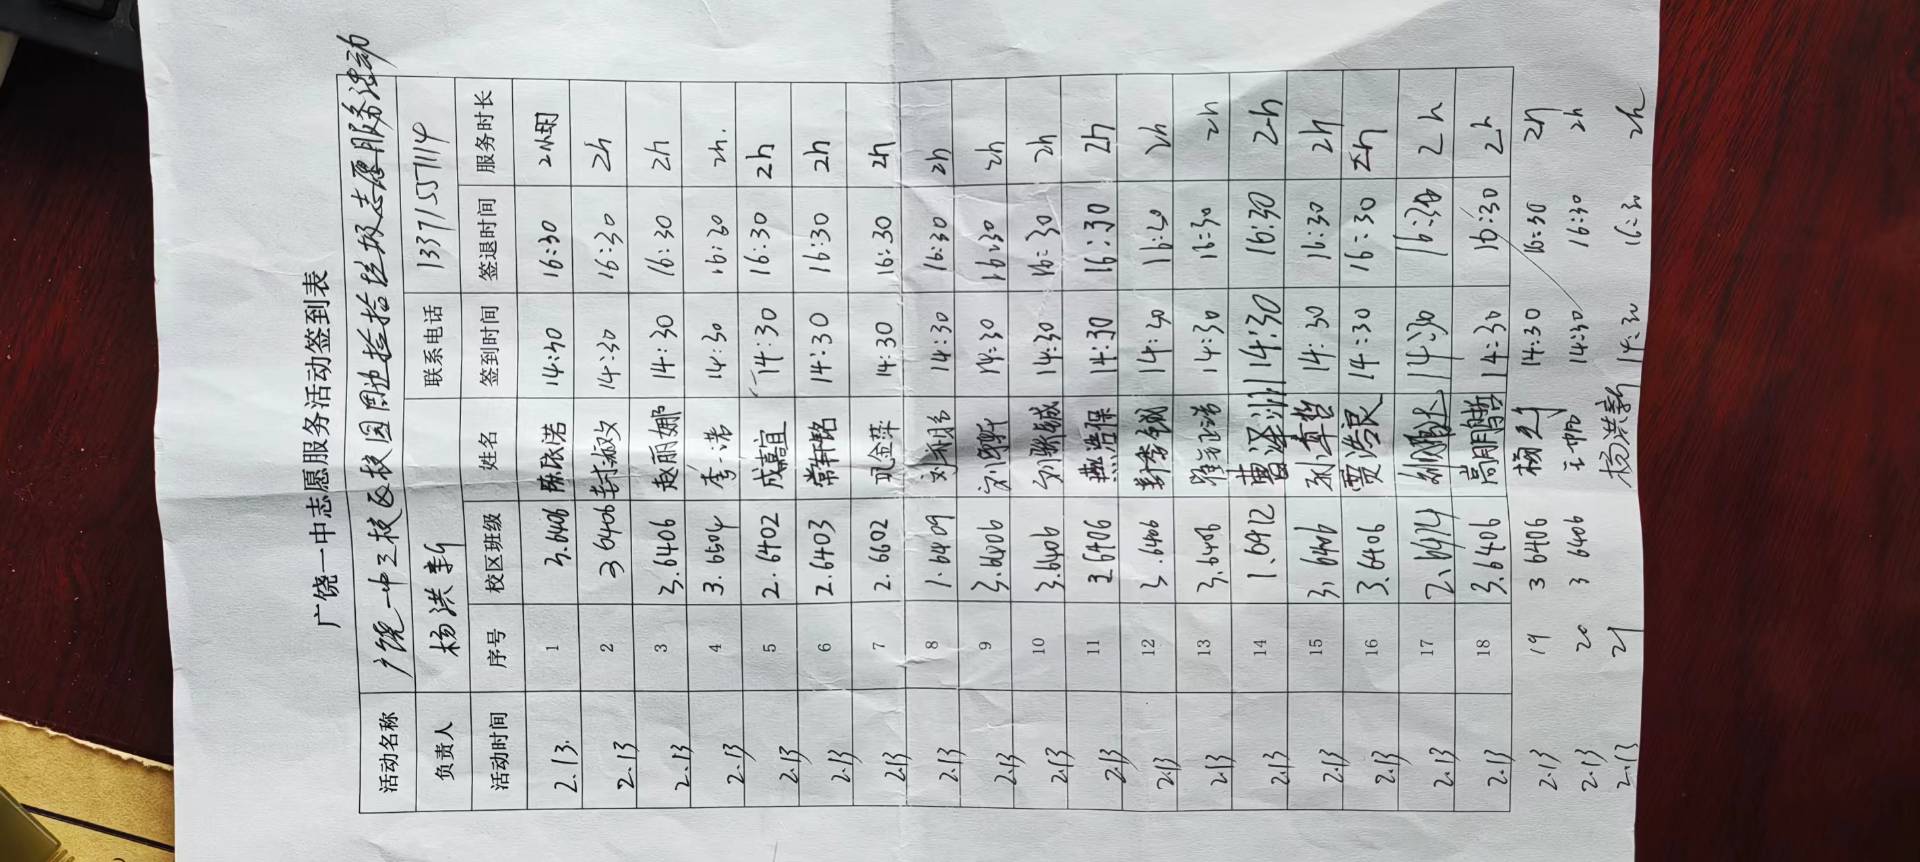 广饶一中志愿服务活动签到表
活动名称 广饶一中三校区校园周边捡拾垃圾志愿服务活动
负责人 杨洪新 联系电话 13371557114
活动时间 序号 校区班级 姓名 签到时间 签退时间 服务时长
2.13. 1 3.6406 陈依诺 14:30 16:30 2小时
2.13 2 3 6406 14:30 16:30 2h
2.13 3 3.6406 赵丽娜 14:30 16:30 2h
2.13 4 3.6504 李诺 14:30 16:30 2h.
2.13 5 2.6402 成嘉宜 14:30 16:30 2h
2.13 6 2.6403 常轩铭 14:30 16:30 2h
2.13 7 2.6602 金萍 14:30 16:30 2h
2.13 8 1.6409 14:30 16:30 2h
2.13 9 3.6406 14:30 16:30 2h
2.13 10 3.6406 14:30 16:30 2h
2.13 11 3.6406 燕浩保 14:30 16:30 2h
2.13 12 3.6406 14:30 16:30 2h
2.13 13 3.6406 14:30 16:30 2h
2.13 14 1.6412 曹泽洲 14:30 16:30 2h
2.13 15 3.6406 14:30 16:30 2h
2.13 16 3.6406 贾浩良 14:30 16:30 2h
2.13 17 2.6414 14:30 16:30 2h
2.13 18 3.6406 高明哲 14:30 16:30 2h
2.13 19 3 6406 14:30 16:30 2h
2.13 20 3 6406 14:30 16:30 2h
2.13 21 杨洪新 14:30 16:30 2h